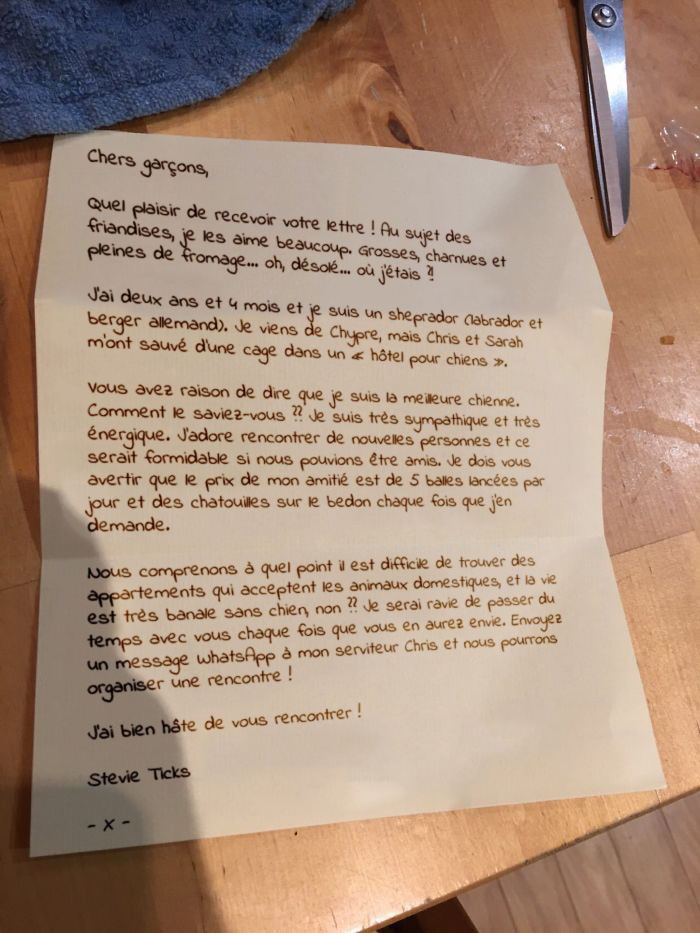 Chers garçons,
Quel plaisir de recevoir votre lettre ! Au sujet des
friandises, je les aime beaucoup. Grosses, charnues et
pleines de fromage... oh, désolé... où j'étais ?!
J'ai deux ans et 4 mois et je suis un sheprador (labrador et
berger allemand). Je viens de Chypre, mais Chris et Sarah
m'ont sauvé d'une cage dans un « hôtel pour chiens ».
Vous avez raison de dire que je suis la meilleure chienne.
Comment le saviez-vous ?? Je suis très sympathique et très
énergique. J'adore rencontrer de nouvelles personnes et ce
serait formidable si nous pouvions être amis. Je dois vous
avertir que le prix de mon amitié est de 5 balles lancées par
jour et des chatouilles sur le bedon chaque fois que j'en
demande.
Nous comprenons à quel point il est difficile de trouver des
appartements qui acceptent les animaux domestiques, et la vie
est très banale sans chien, non ?? Je serai ravie de passer du
temps avec vous chaque fois que vous en aurez envie. Envoyez
un message WhatsApp à mon serviteur Chris et nous pourrons
organiser une rencontre !
J'ai bien hâte de vous rencontrer !
Stevie Ticks
- x -